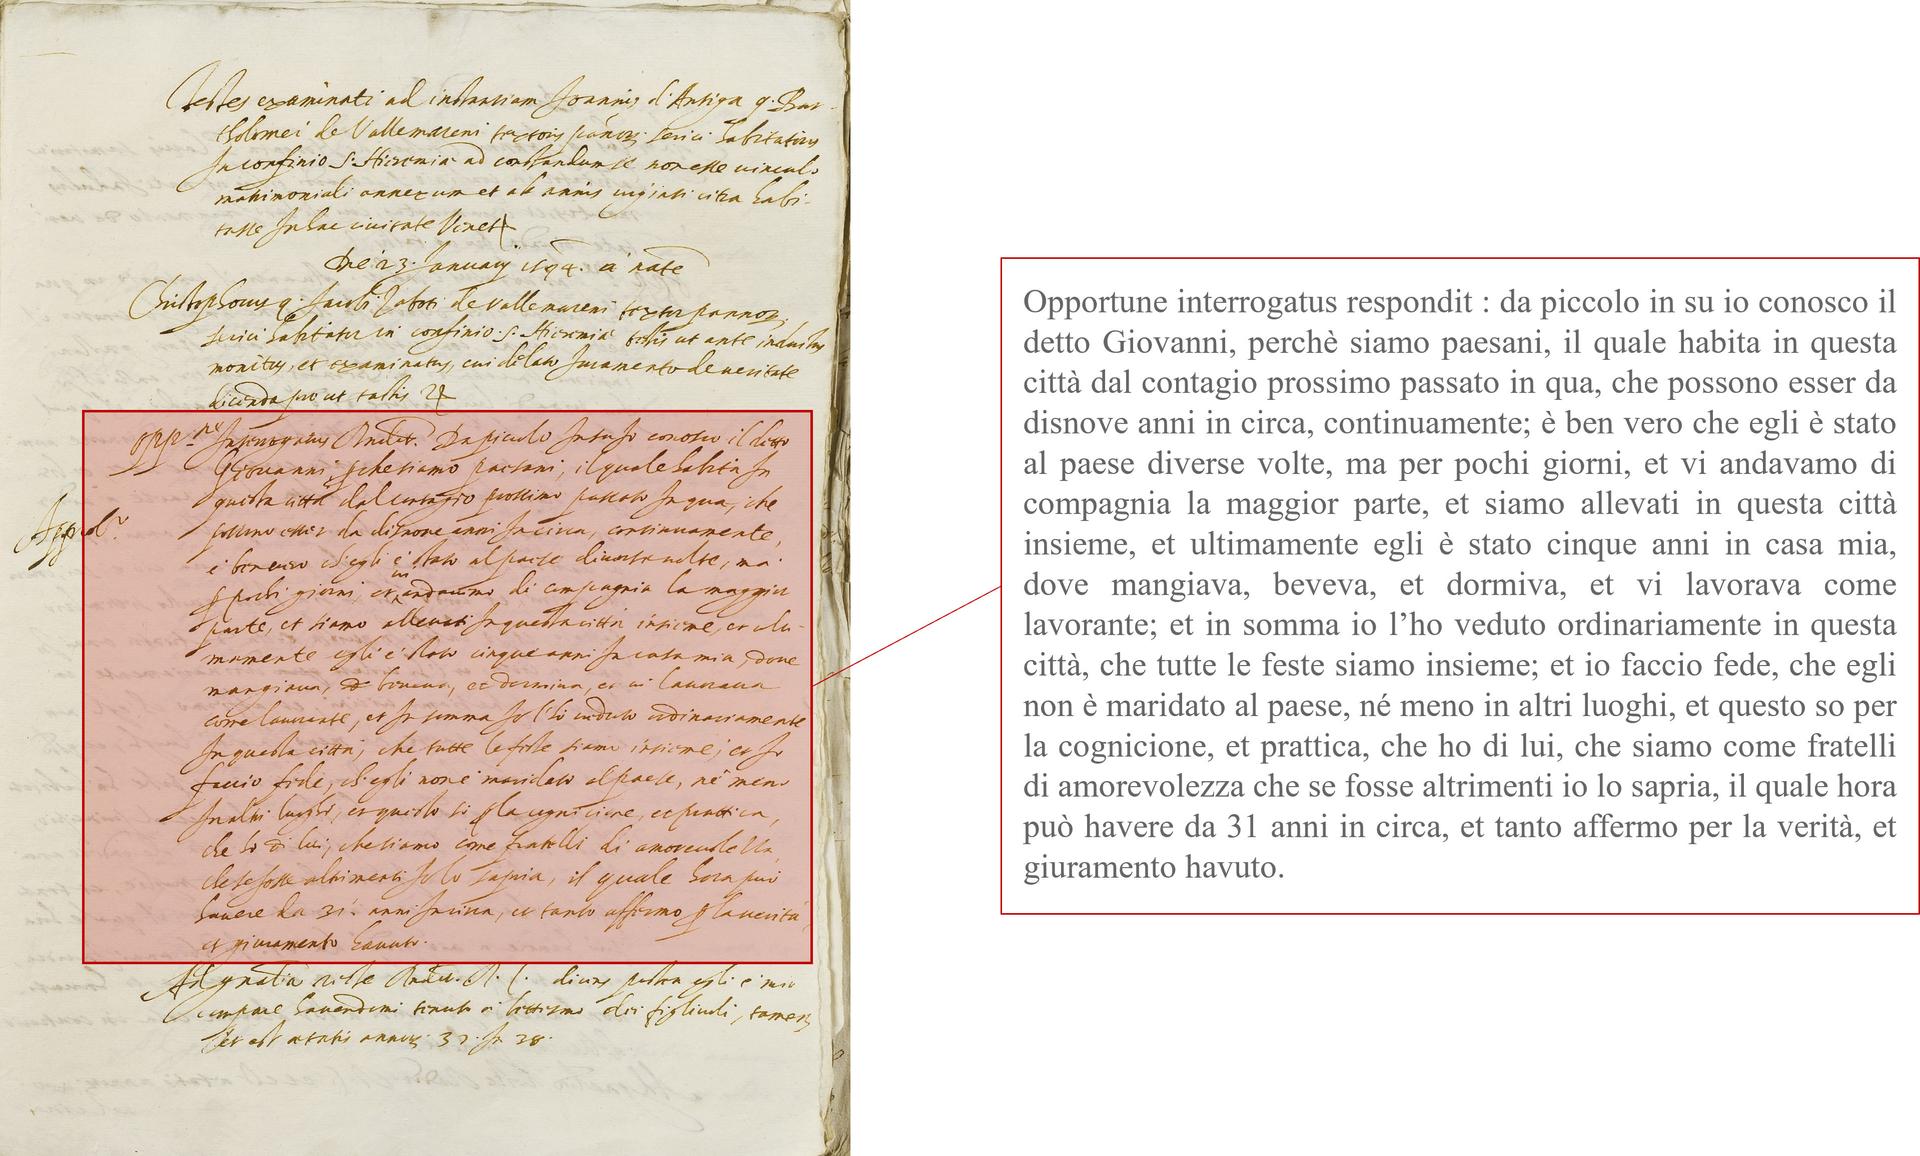 Testes examinati ad instantiam Joannis d'Antiga q. Bar-
tholomei de Vallemareni textoris serici habitatoris
In confinio S. Hieremia ad constandum se non esse vinculo
matrimoniali annexum et ab annis viginti citra habi-
tasse In hac civitate Venet
Die 23 January 1594. a nate
Christophorus q. Jacobi de Vallemareni textor pannor
serici habitator in confinio S. Hieremia testis ut ante inductus
monitus, et examinatus, cui delato Juramento de veritate
dicenda prout tactis
Interrogatus Da piculo In su Io conosco il detto
Giovanni, siamo paesani, il quale habita In
questa città dal contagio prossimo passato In qua, che
possono esser da disnove anni In circa, continuamente,
è ben vero ch'egli è stato al paese diverse volte, ma
pochi giorni, et vi andavamo di compagnia la maggior
parte, et siamo allevati In questa città insieme, et ulti-
mamente egli è stato cinque anni In casa mia, dove
mangiava, beveva, et dormiva, et vi lavorava
come lavorante, et In somma Io l'ho veduto ordinariamente
In questa città, che tutte le feste siamo insieme; et Io
faccio fede, ch'egli non è maridato al paese, né meno
In altri luoghi, et questo so la cognicione, et prattica,
che ho di lui, che siamo come fratelli di amorevolezza
che se fosse altrimenti Io lo sapria, il quale hora può
havere da 31 anni In circa, et tanto affermo la verità,
et giuramento havuto.
egli è mio
compare havendomi tenuto a battesimo dei figlioli, tamen
et est aetatis annor
Opportune interrogatus respondit : da piccolo in su io conosco il
detto Giovanni, perchè siamo paesani, il quale habita in questa
città dal contagio prossimo passato in qua, che possono esser da
disnove anni in circa, continuamente; è ben vero che egli è stato
al paese diverse volte, ma per pochi giorni, et vi andavamo di
compagnia la maggior parte, et siamo allevati in questa città
insieme, et ultimamente egli è stato cinque anni in casa mia,
dove mangiava, beveva, et dormiva, et vi lavorava come
lavorante; et in somma io l’ho veduto ordinariamente in questa
città, che tutte le feste siamo insieme; et io faccio fede, che egli
non è maridato al paese, né meno in altri luoghi, et questo so per
la cognicione, et prattica, che ho di lui, che siamo come fratelli
di amorevolezza che se fosse altrimenti io lo sapria, il quale hora
può havere da 31 anni in circa, et tanto affermo per la verità, et
giuramento havuto.